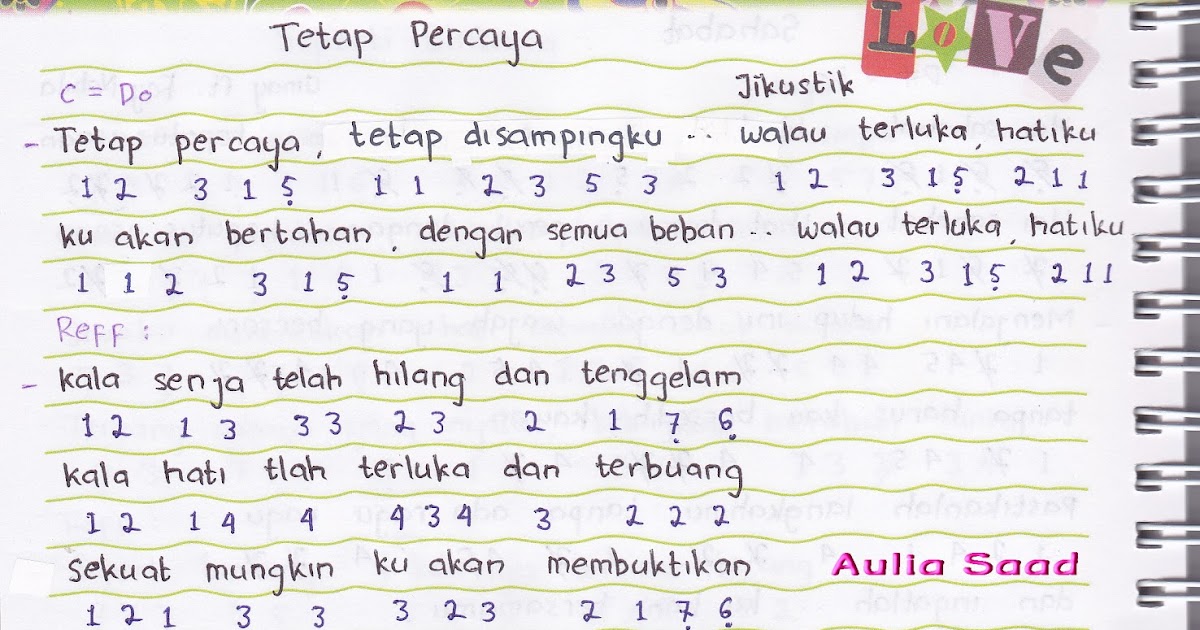 Tetap Percaya
LOVe
C = Do
Jikustik
- Tetap percaya, tetap disampingku .. walau terluka, hatiku
1 2 3 1 5̣ 1 1 2 3 5 3 1 2 3 1 5̣ 2 1 1
ku akan bertahan, dengan semua beban .. walau terluka, hatiku
1 1 2 3 1 5̣ 1 1 2 3 5 3 1 2 3 1 5̣ 2 1 1
Reff :
- kala senja telah hilang dan tenggelam
1 2 1 3 3 3 2 3 2 1 7̣ 6̣
kala hati tlah terluka dan terbuang
1 2 1 4 4 4 3 4 3 2 2 2
sekuat mungkin ku akan membuktikan
Aulia Saad
1 2 1 3 3 3 2 3 2 1 7̣ 6̣